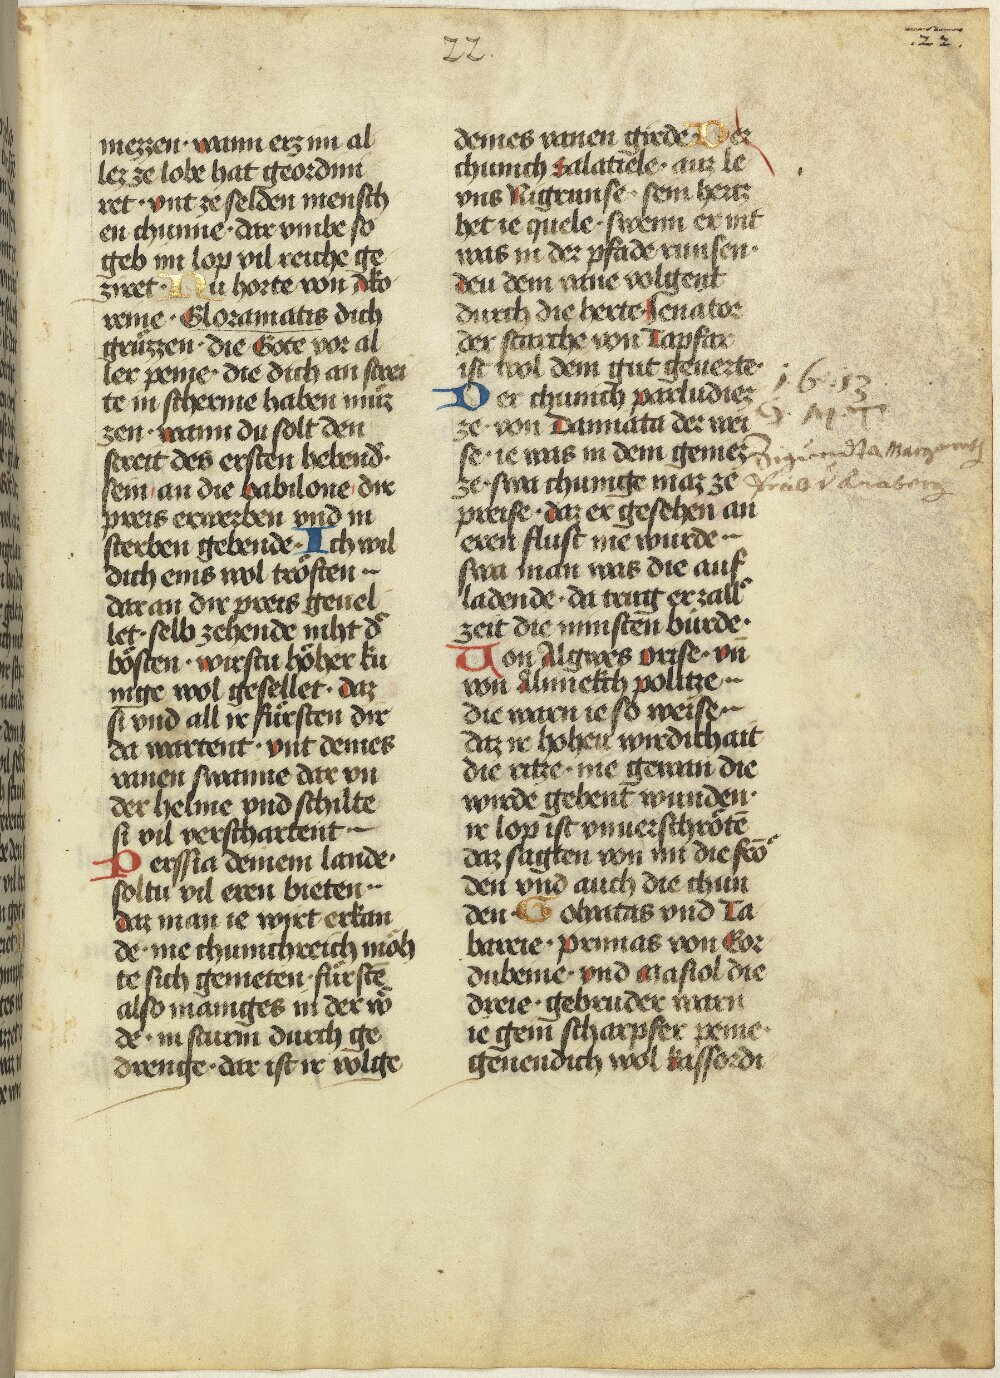 22.
.22.
mezzen · wann erz im al
ler ze lobe hat geordini
ret · vnt ze selden mensch
en chunne · dar vmbe so
geb im lop vil reiche ge
zwet · Nu horte von
reme · Gloramatis dich
grůzzen · die Gote vor al
ler peine · die dich an strei
te in scherme haben můz
zen · wann du solt den
streit des ersten hebend͛ ·
sein an die babilone · dir
preis erwerben vnd in
sterben gebende · Ich wil
dich eins wol trösten ··
daran dir preis geuel
let · selb zehende niht d͛
bösten · wirstu höher ku
nige wol gesellet · daz
si vnd all ir fürsten dir
da wartent · vnt deines
vanen swanne dar vn
der helme vnd schilte
si vil verschartent ··
Perssia deinem lande ·
soltu vil eren bieten ··
daz man ie wirt erkan
de · nie chunichreich möh
te sich genieten · fürstē
also maniges in der wō
de · in sturm durch ge
drenge · dar ist ir volge
deines vanen girde · Der
chunich Salatiele · auz le
vns Nigrunse · sein hertz
het ie quele · swenn er nit
was in der pfade runsen ·
den dem vane volgent
durch die herte · Senator
der starche von Tapfar
ist wol dem gut geuerte ·
Der chunich parludiez
ze · von Dannata der wei
se · ie was in dem geniez
ze · swa chunige maz ze
preise · daz er gesehen an
eren flust nie wurde ··
swa man was die auf
ladende · da trug er zall͛
zeit die minsten bürde ·
Von Algwes Orise · vn̄
von Alimekch politze ··
die warn ie so weise ··
daz ir hohen wirdichait
die ritze · nie gewan die
wirde gebent wunden ·
ir lop ist vnuerschrötē
daz sagten von im die frō
den vnd auch die chun
den · Gohatas vnd Ta
bareie · primas von Cor
dubeine · vnd Masiol die
dreie · gebruder warn
ie gein scharpfer peine ·
geuendich wol kassordi
16·13
G · M · T